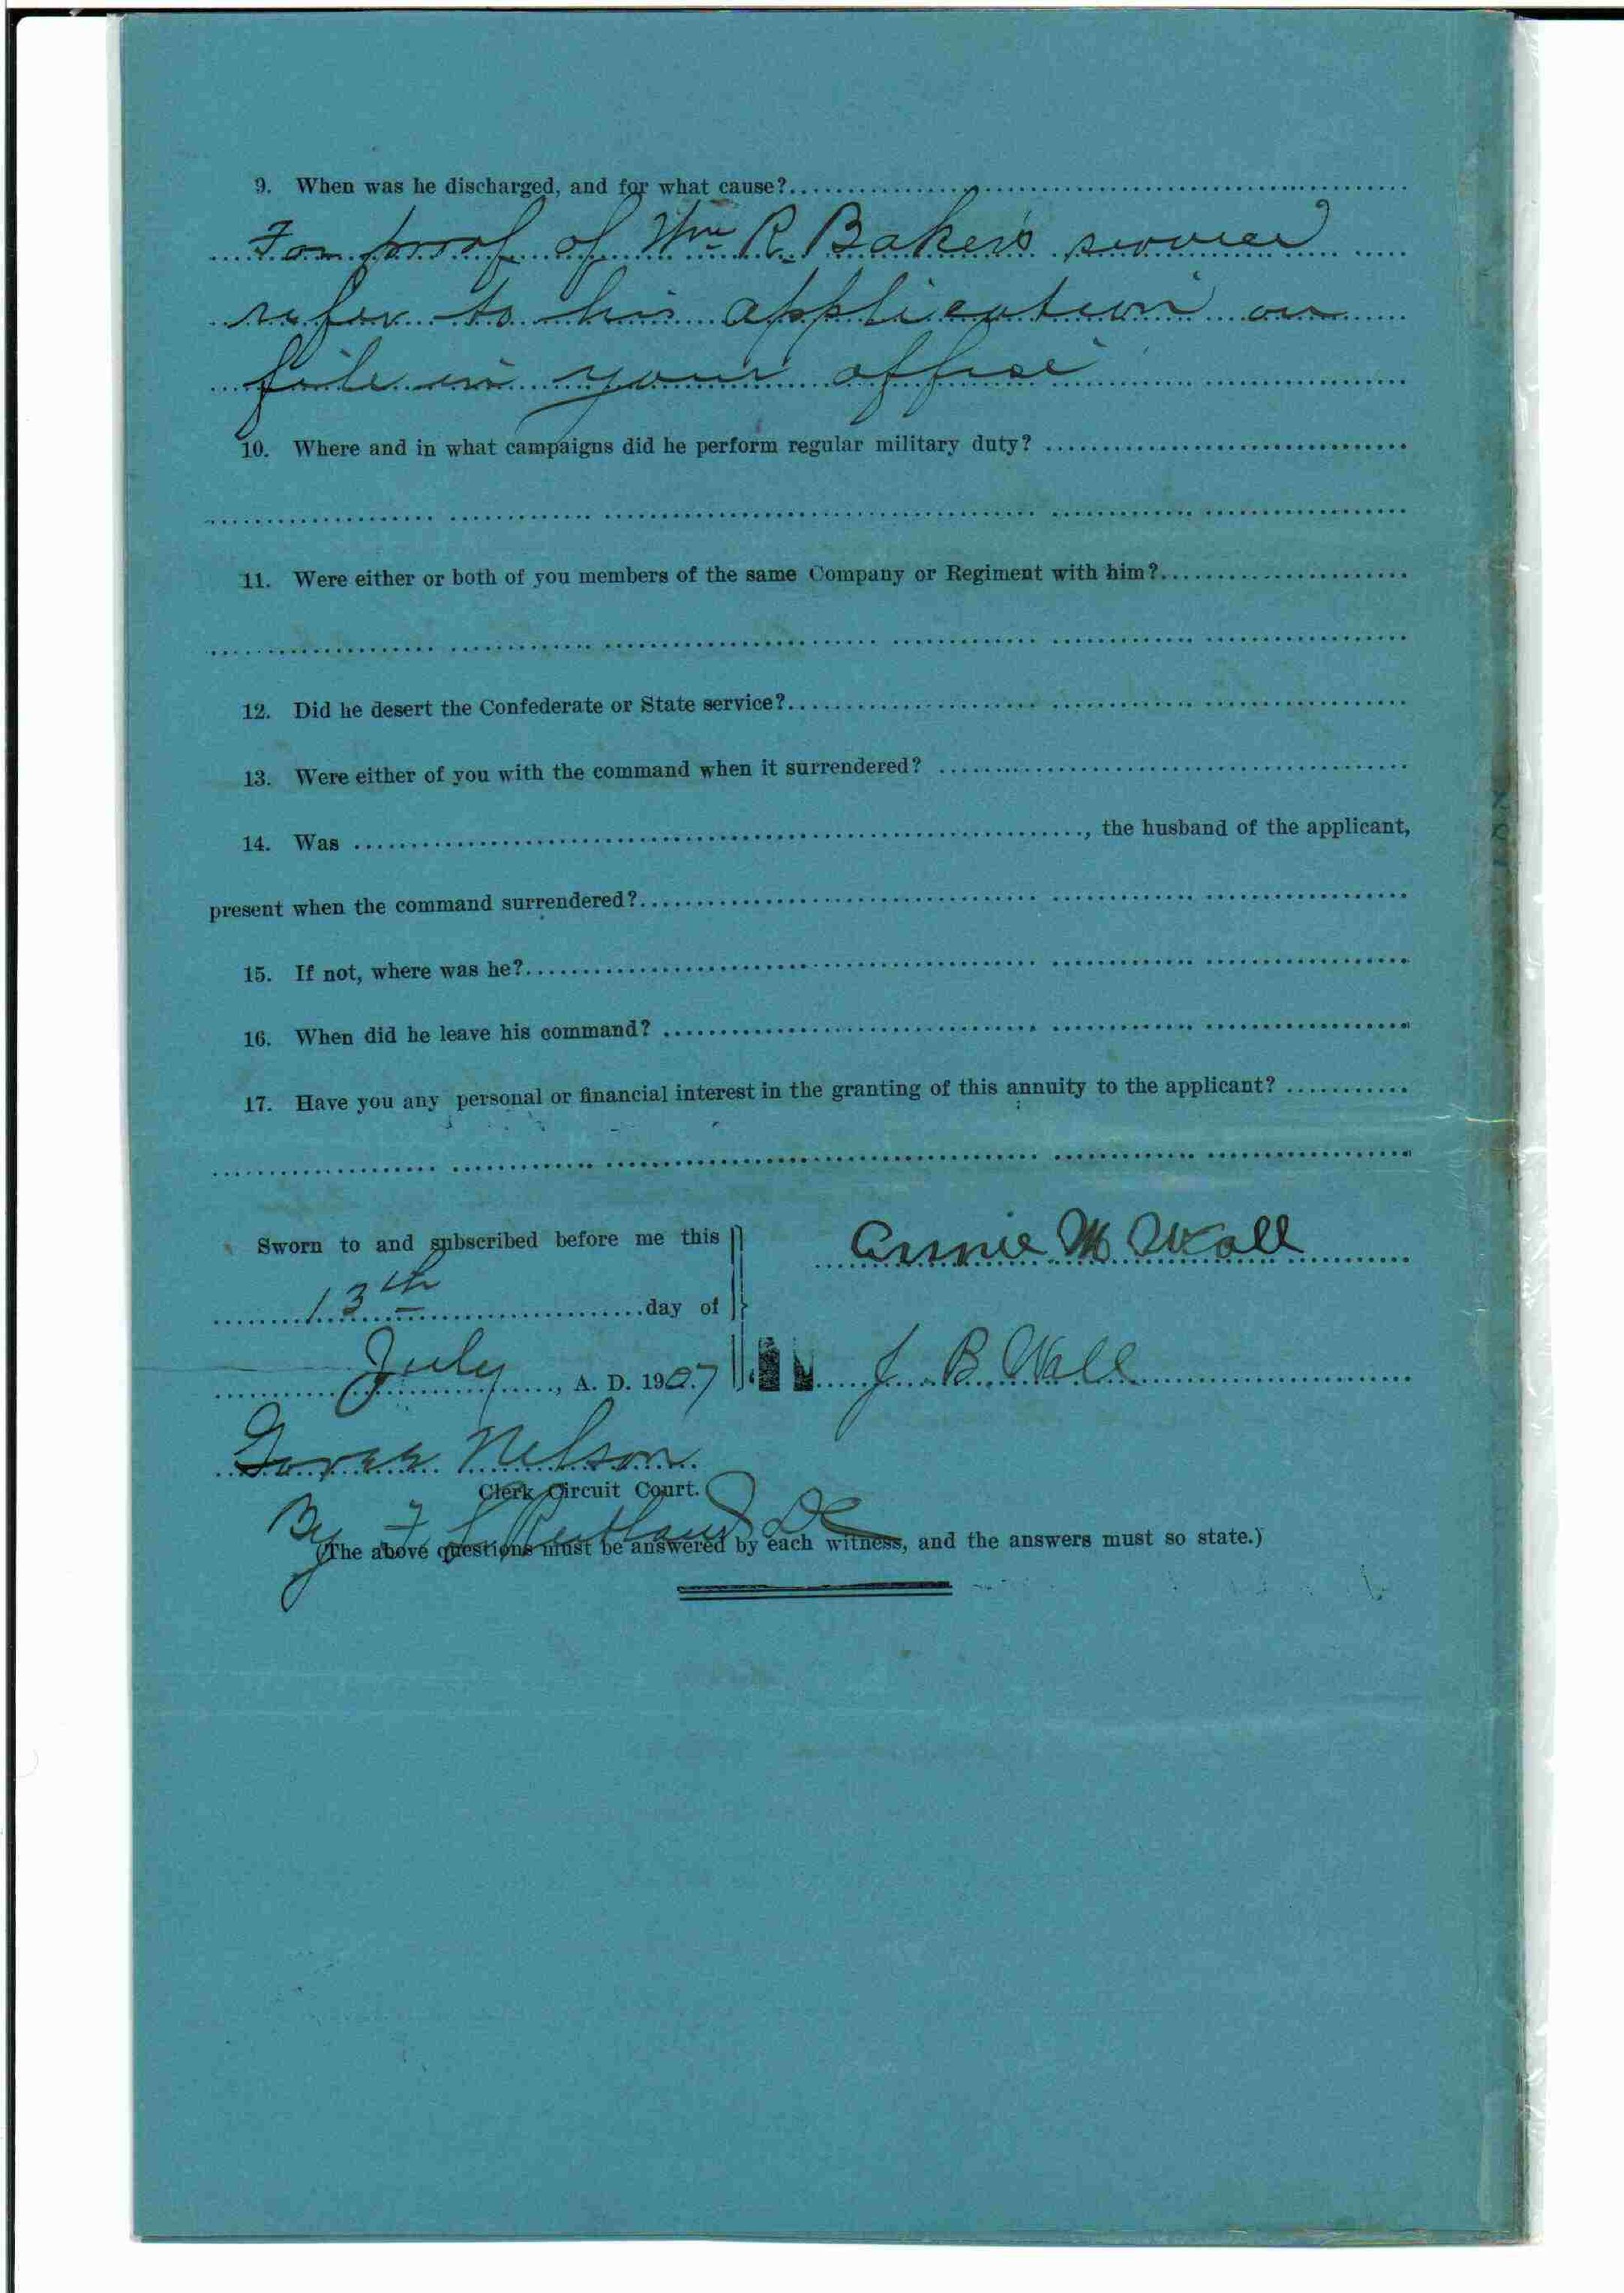 9. When was he discharged, and for what cause?
For proof of Wm R. Baker's service
refer to his application on
file in your office
10. Where and in what campaigns did he perform regular military duty?
11. Were either or both of you members of the same Company or Regiment with him?
12. Did he desert the Confederate or State service?
13. Were either of you with the command when it surrendered?
14. Was , the husband of the applicant,
present when the command surrendered?
15. If not, where was he?
16. When did he leave his command?
17. Have you any personal or financial interest in the granting of this annuity to the applicant?
Sworn to and subscribed before me this
Annie M Wall
13th day of
July, A. D. 1907
J. B. Wall
Nelson
Clerk Circuit Court.
By F. DC
(The above questions must be answered by each witness, and the answers must so state.)